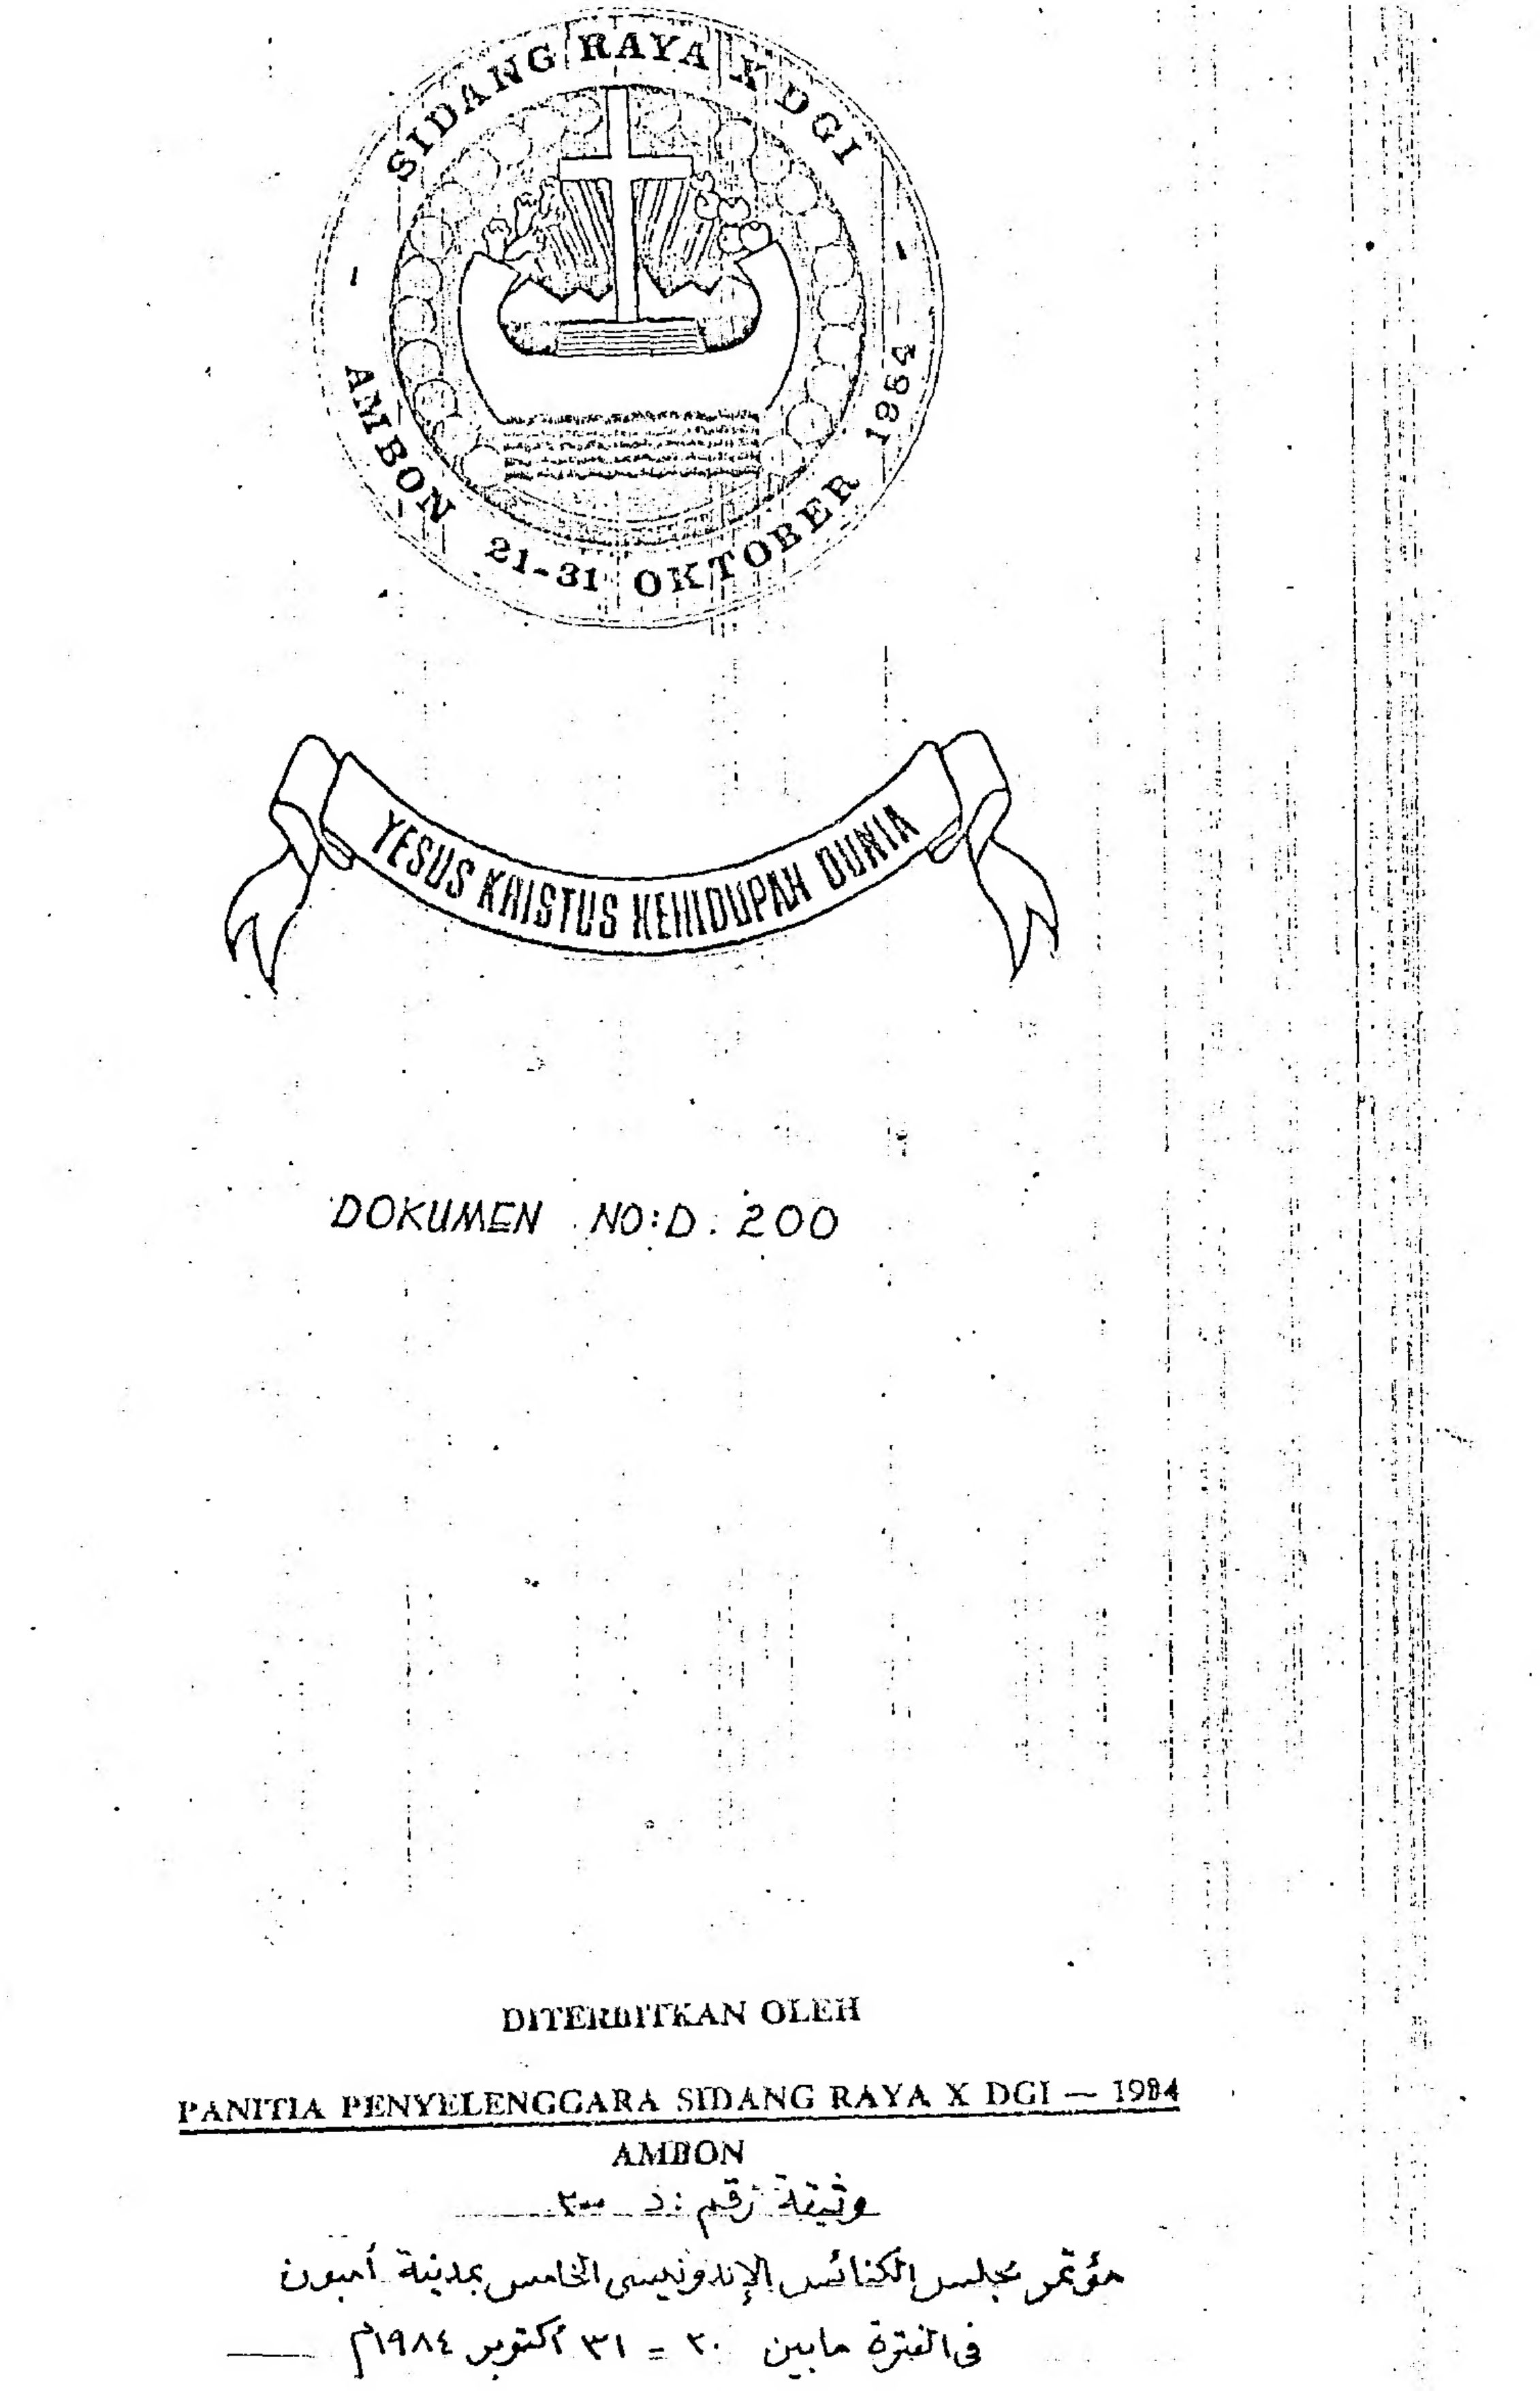 SIDANG RAYA X DGI
AMBON 21-31 OKTOBER 1984
YESUS KRISTUS KEHIDUPAN DUNIA
DOKUMEN NO:D. 200
DITERBITKAN OLEH
PANITIA PENYELENGGARA SIDANG RAYA X DGI — 1984
AMBON
وثيقة رقم : د ٢٠٠
مؤتمر مجلس الكنائس الإندونيسى الخامس بمدينة أمبون
فى الفترة مابين ٢٠ = ٣١ أكتوبر ١٩٨٤م